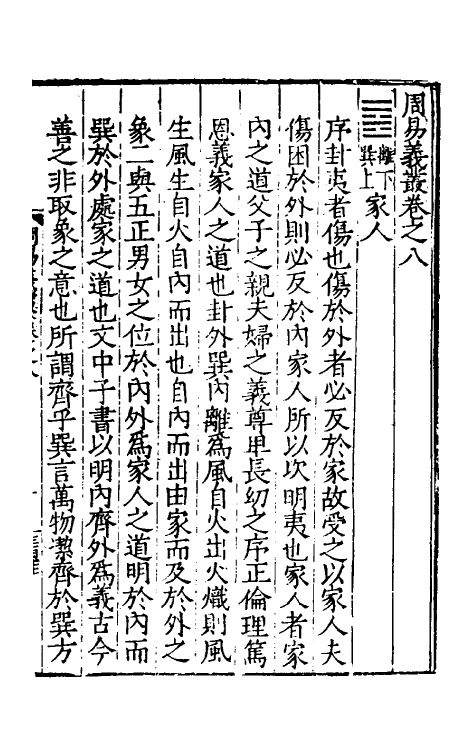 周易義叢卷之八
離下
巽上
家人
序卦夷者傷也傷於外者必反於家故受之以家人夫
傷困於外則必反於內家人所以次明夷也家人者家
內之道父子之親夫婦之義尊卑長幼之序正倫理篤
恩義家人之道也卦外巽內離爲風自火出火熾則風
生風生自火自內而出也自內而出由家而及於外之
象二與五正男女之位於內外爲家人之道明於內而
巽於外處家之道也文中子書以明內齊外爲義古今
善之非取象之意也所謂齊乎巽言萬物潔齊於巽方